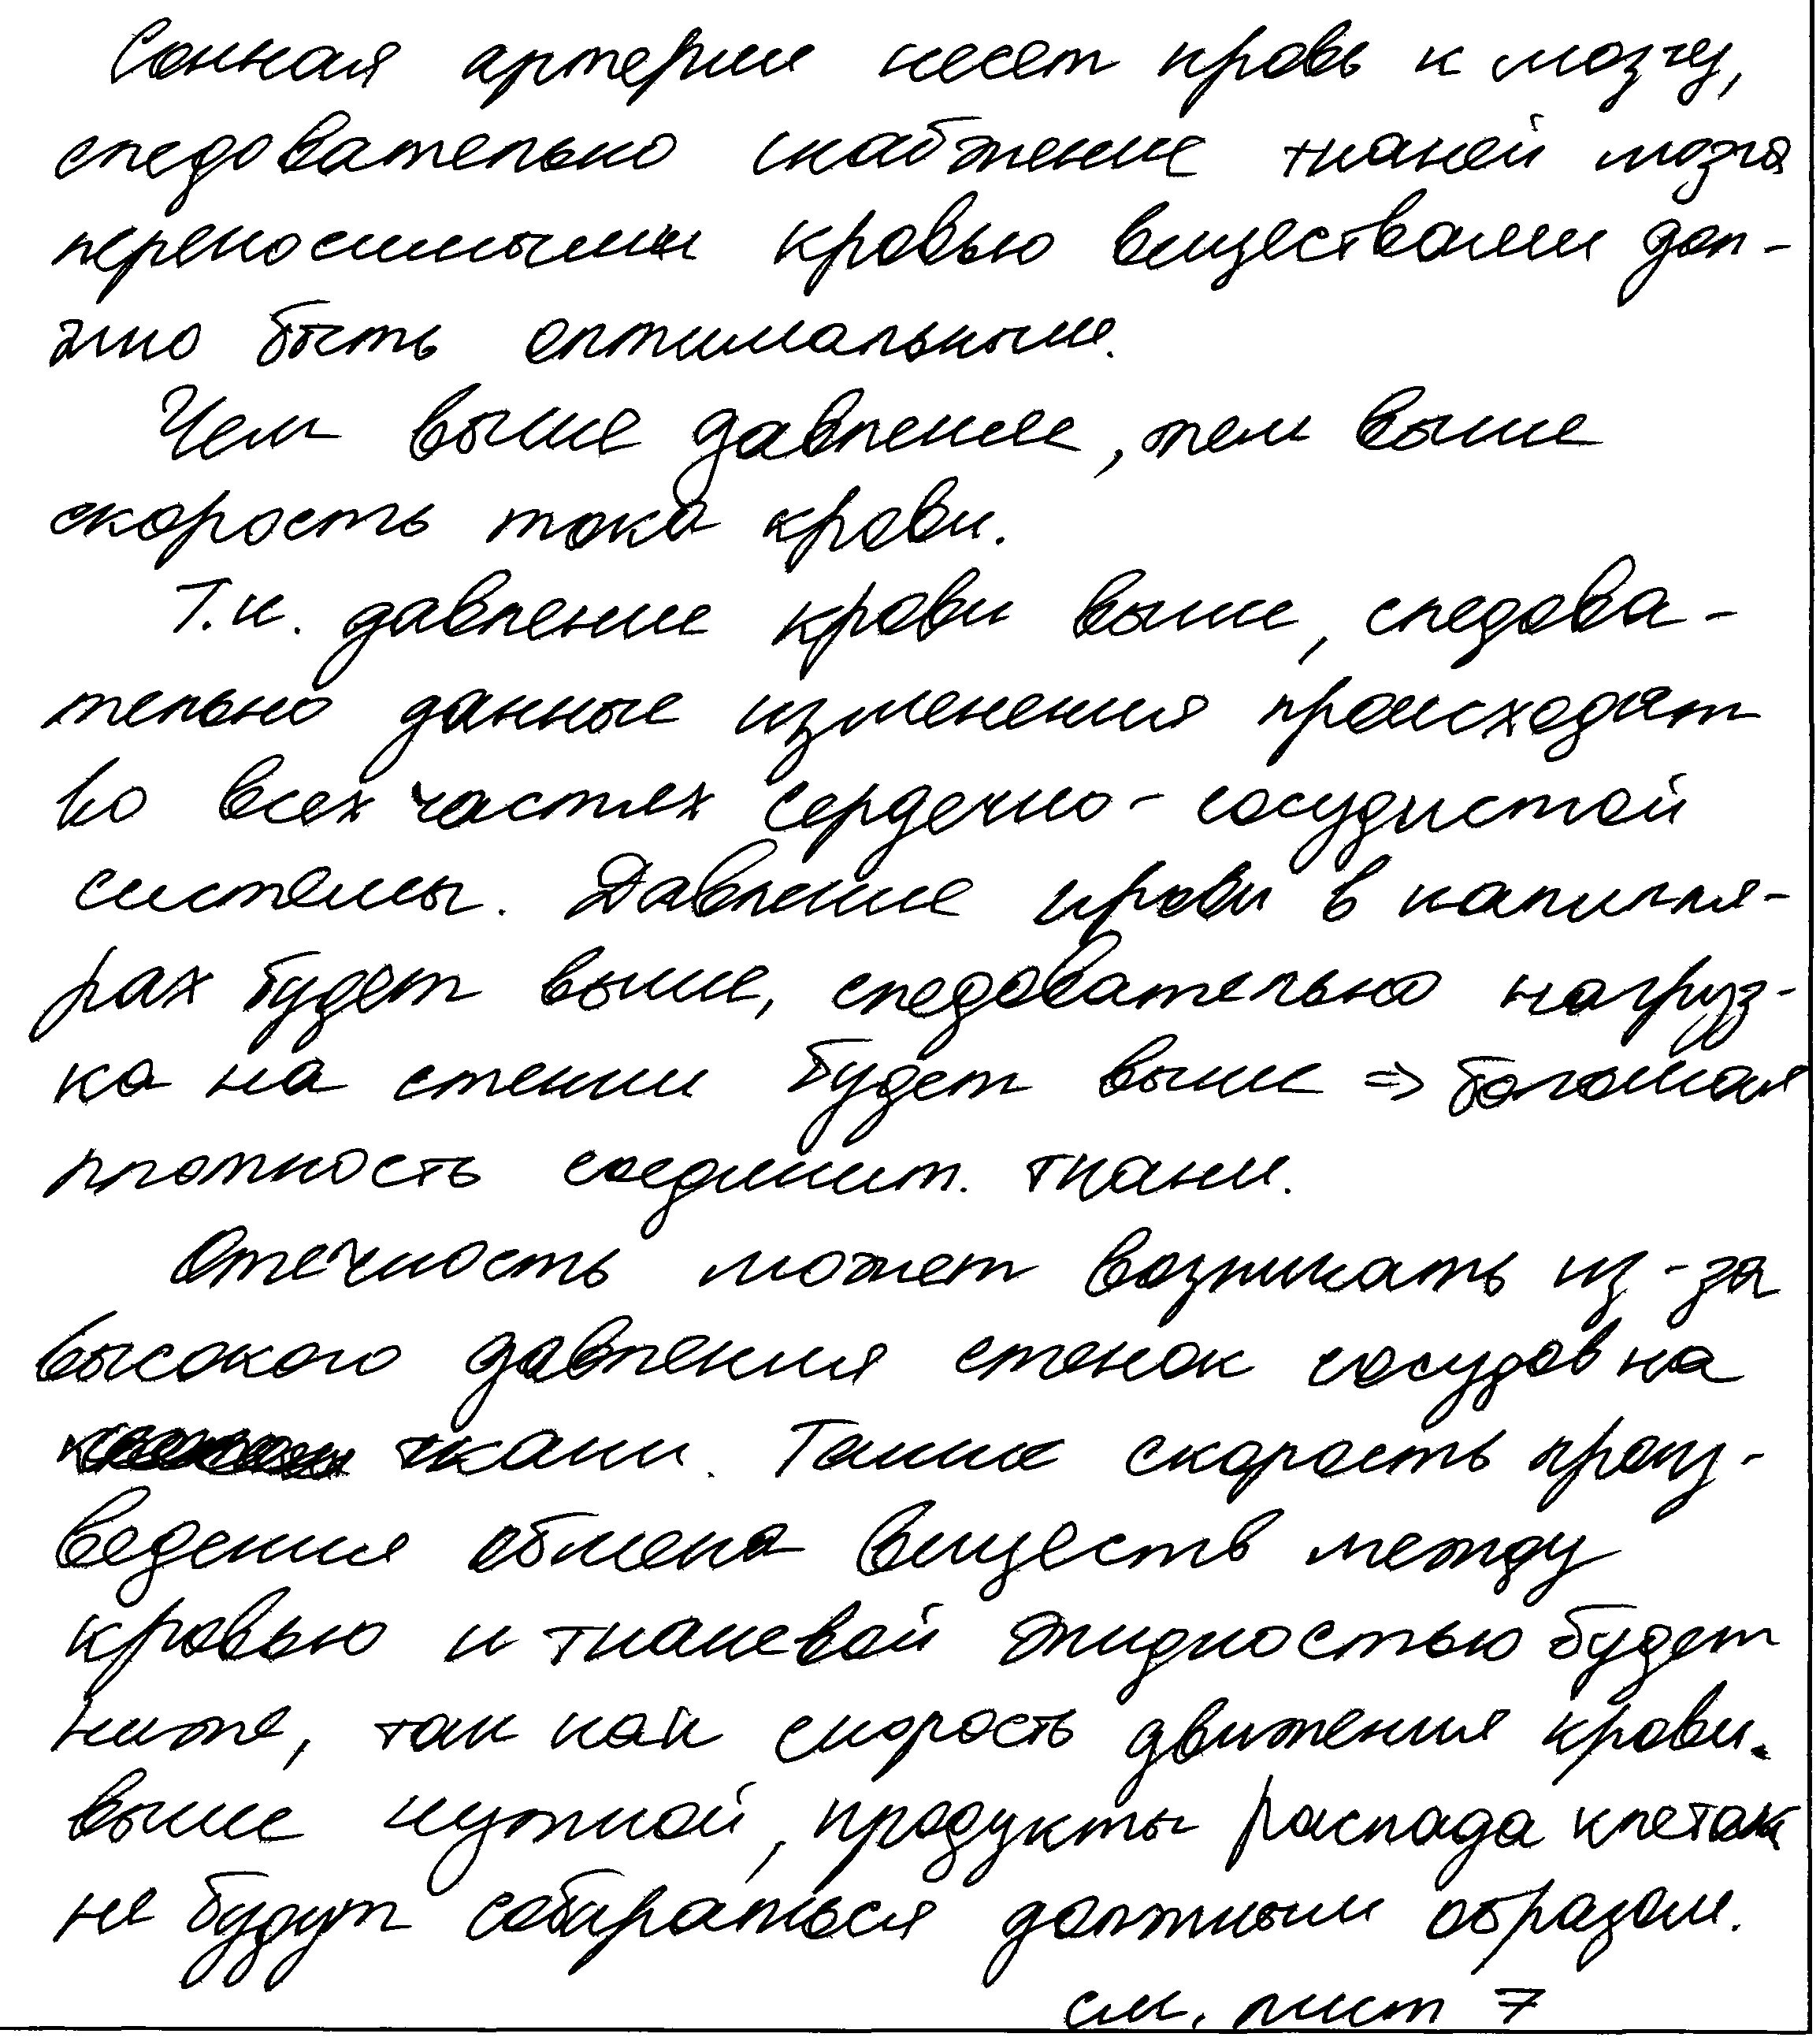 Сонная артерии несет кровь к мозгу,
следовательно снабжение тканей мозга
переносимыми кровью веществами дол-
жно быть оптимальным.
Чем выше давление, тем выше
скорость тока крови.
Т.к. давление крови выше, следова-
тельно данные изменения происходят
во всех частях сердечно-сосудистой
системы. Давление крови в капилля-
рах будет выше, следовательно нагруз-
ка на стенки будет выше ⇒ большая
плотность соединит. ткани.
Отечность может возникать из-за
высокого давления стенок сосудов на
ткани. Также скорость произ-
ведения обмена веществ между
кровью и тканевой жидкостью будет
ниже, так как скорость движения крови
выше нужной, продукты распада клеток
не будут собираться должным образом.
см. лист 7